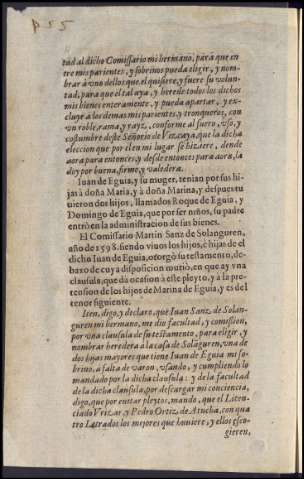 P 5 5
tad al dicho Comissario mi hermano, para que en
tre mis parientes, y sobrinos pueda elegir, y nom-
brar à vno dellos que el quisiere, y fuere su volun-
tad, para que el tal aya, y herede todos los dichos
mis bienes enteramente, y pueda apartar, y ex-
cluyr a los demas mis parientes, y tronqueros, con
vn roble, rama, y rayz, conforme al fuero, vso, y
costumbre deste Señorio de Vizcaya, que la dicha
eleccion que por el en mi lugar se hiziere, dende
aora para entonces, y desde entonces para aora, la
doy por buena, firme, y valedera.
Iuan de Eguia, y su muger, tenian por sus hi-
jas à doña Maria, y à doña Marina, y despues tu
uieron dos hijos, llamados Roque de Eguia, y
Domingo de Eguia, que por ser niños, su padre
entrò en la administracion de sus bienes.
El Comissario Martin Sanz de Solanguren,
año de 1598. siendo viuos los hijos, è hijas de el
dicho Iuan de Eguia, otorgò su testamento, de-
baxo de cuya disposicion murió, en que ay vna
clausula, que dà ocasion à este pleyto, y à la pre-
tension de los hijos de Marina de Eguia, y es del
tenor siguiente.
Iten, digo, y declaro, que Iuan Sanz de Solan-
guren mi hermano, me diò facultad, y comission,
por vna clausula de su testamento, para elegir, y
nombrar heredera a la casa de Solāguren, vna de
dos hijas mayores que tiene Iuan de Eguia mi so-
brino, à falta de varon, vsando, y cumpliendo lo
mandado por la dicha clausula: y de la facultad
de la dicha clausula, por descargar mi conciencia,
digo, que por euitar pleytos, mando, que el Licen-
ciado Vrizar, y Pedro Ortiz de Atucha, con qua
tro Letrados los mejores que huuiere, y ellos esco-
gieren,